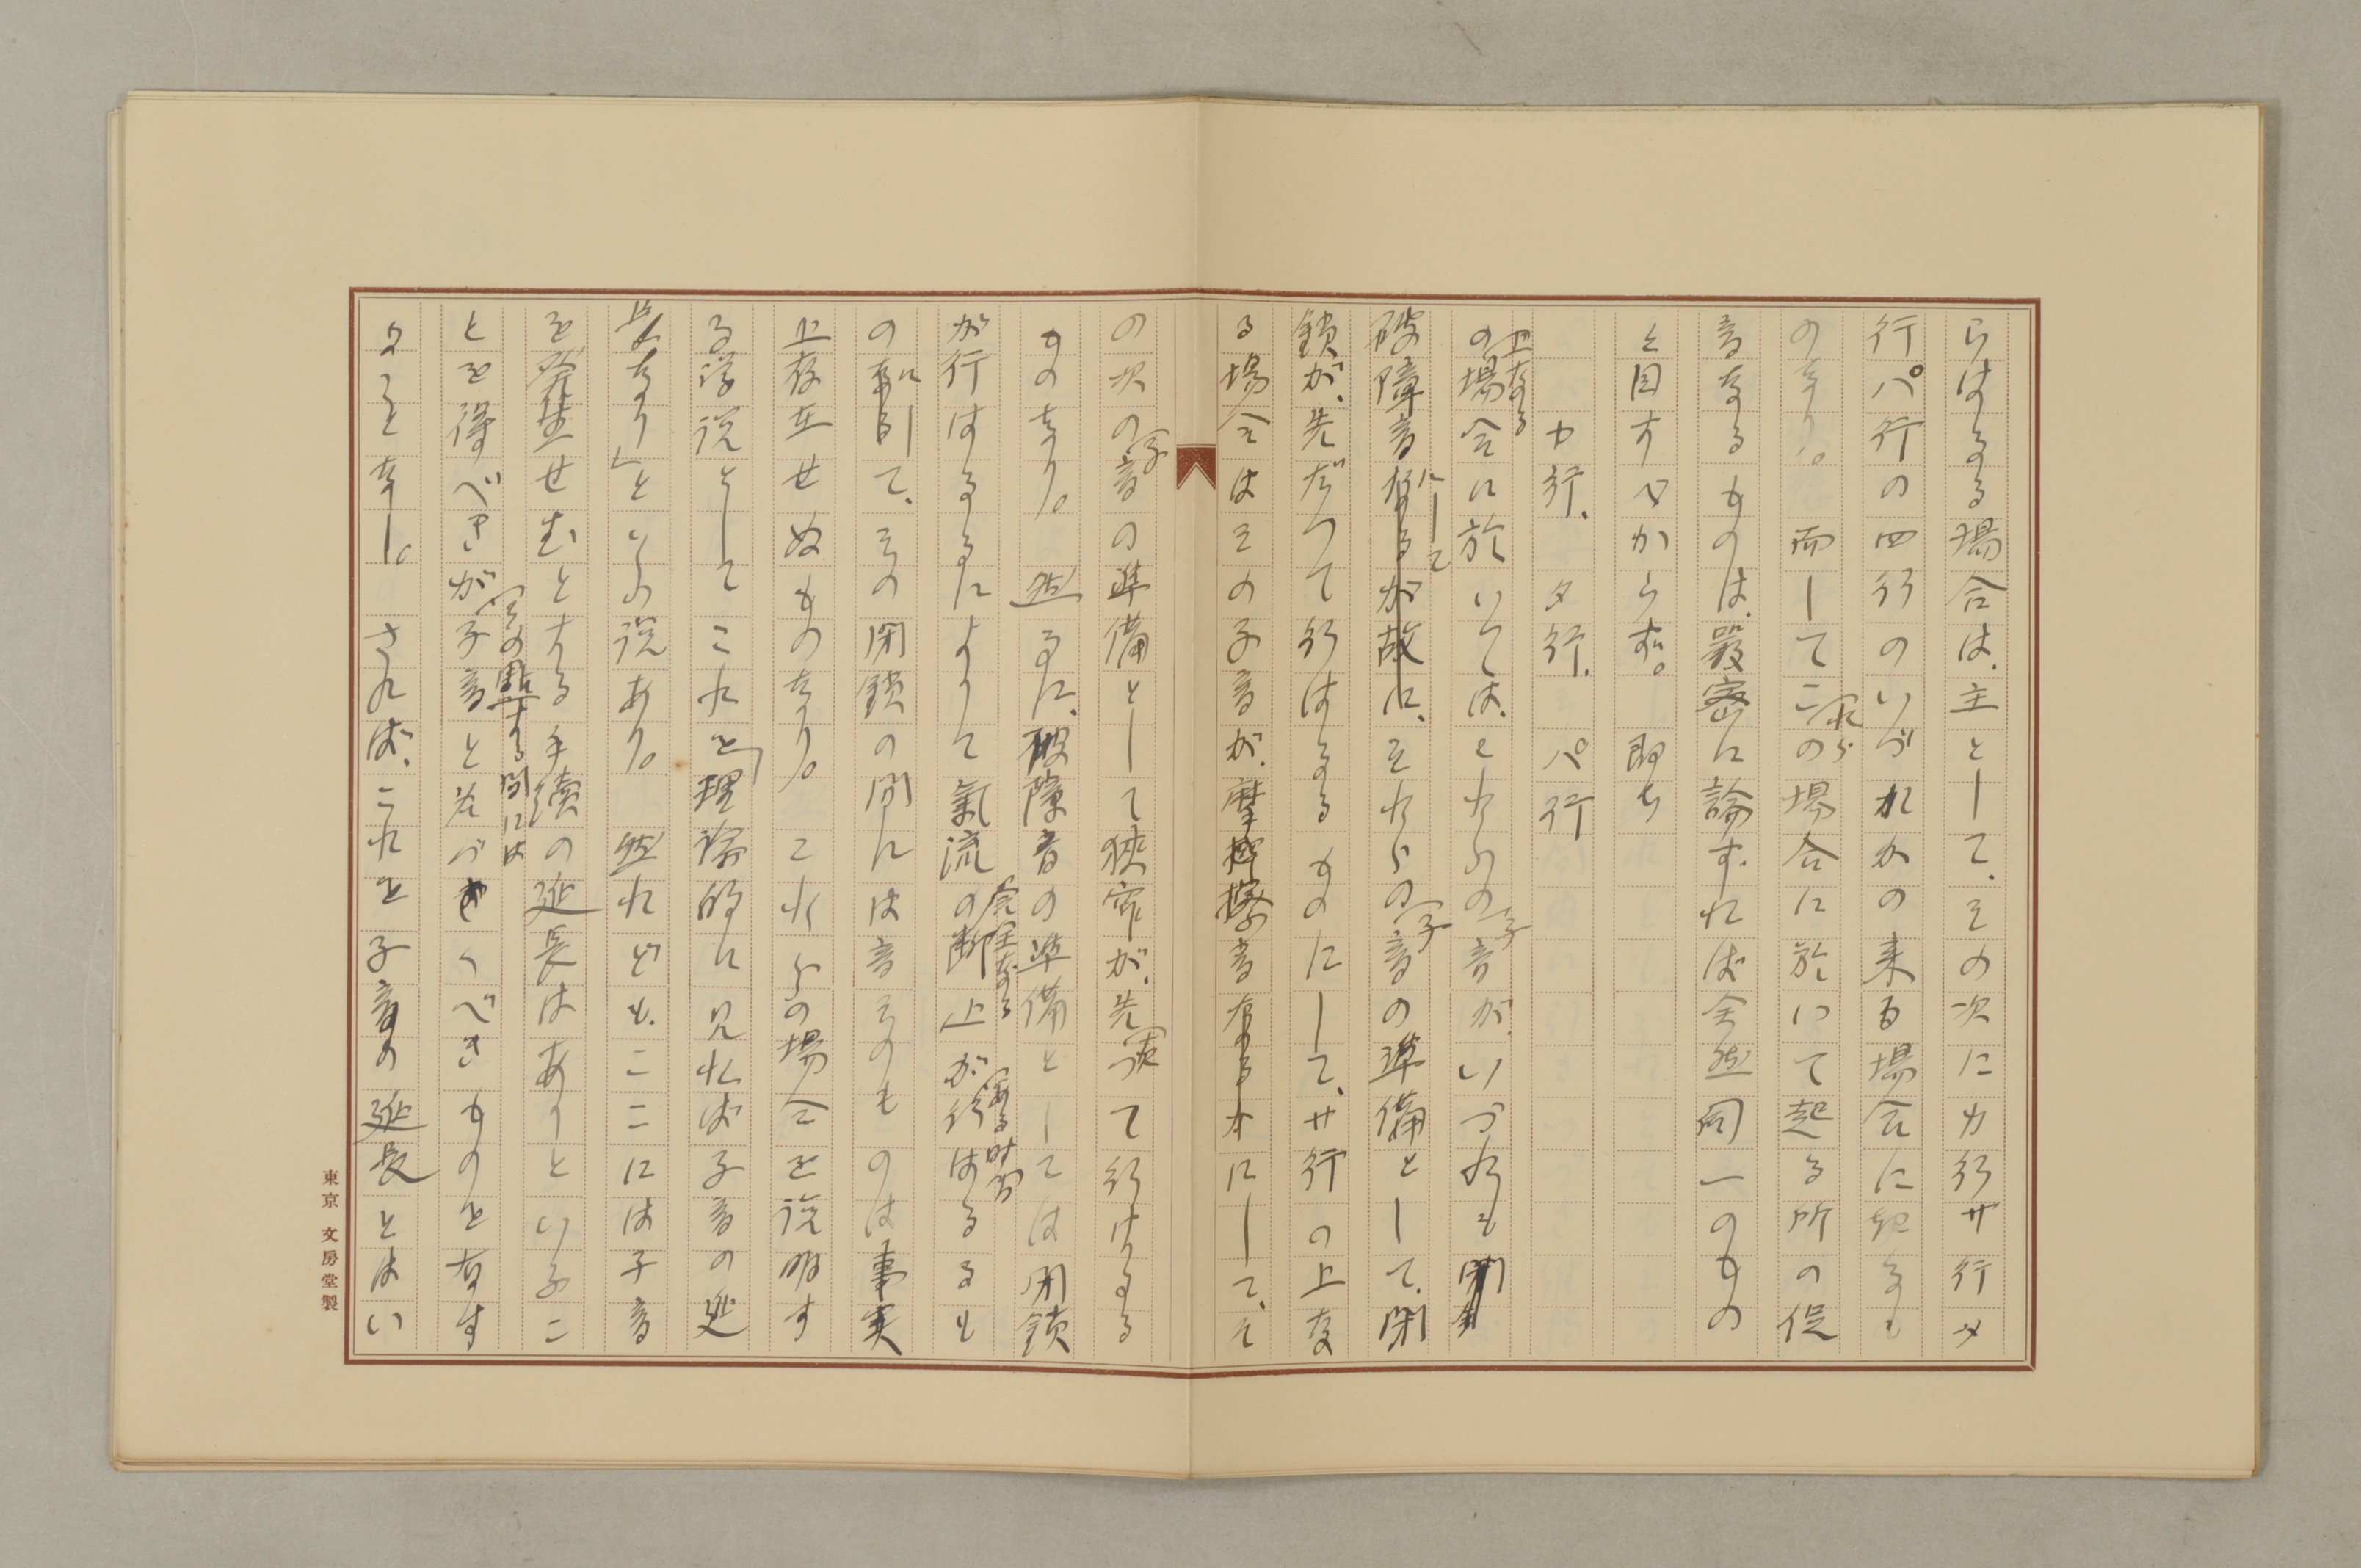 らはるゝ場合は、主として、その次にカ行サ行タ
行パ行の四行のいづれかの来る場合に起るも
のなり。而してこれらの場合に於いて起る所の促
音なるものは、嚴密に論ずれば全然同一のもの
と目すべからず。即ち
カ行、タ行、パ行
の場合に於いては、それらの子音が、いづれも
上なる
破障音にして、それらの子音の準備として、閉
鎖が、先だつて行はるゝものにして、サ行の上な
る場合はその子音が、摩擦音にして、そ
の次の子音の準備として狹窄が、先づて行はるゝ
ものなり。然るに、破障音の準備としては閉鎖
が行はるゝによりて氣流の完全なる断止が或る時間行はるゝも
のにして、その閉鎖の間には音そのものは事実
上存在せぬものなり。これらの場合を説明す
る学説としてこれを理論的に見れば子音の延
長なり」といふ説あり。然れども、ここには子音
を發生せむとする手続の延長はありといふこ
とを得べきが子音と名づくべきものを有す
その點する間には
ることなし。されば、これを子音の延長とはい
東京 文房堂製